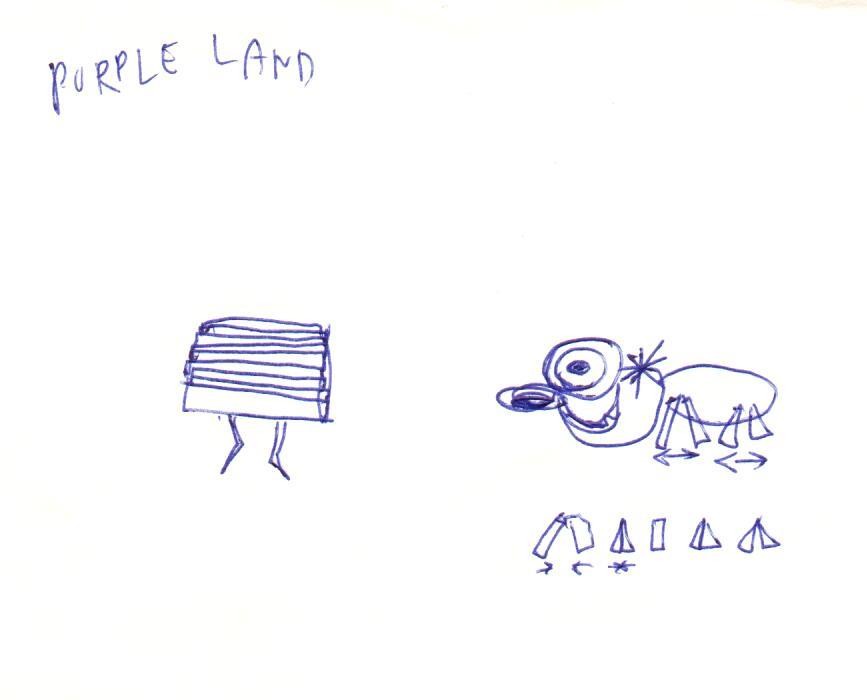 PURPLE LAND